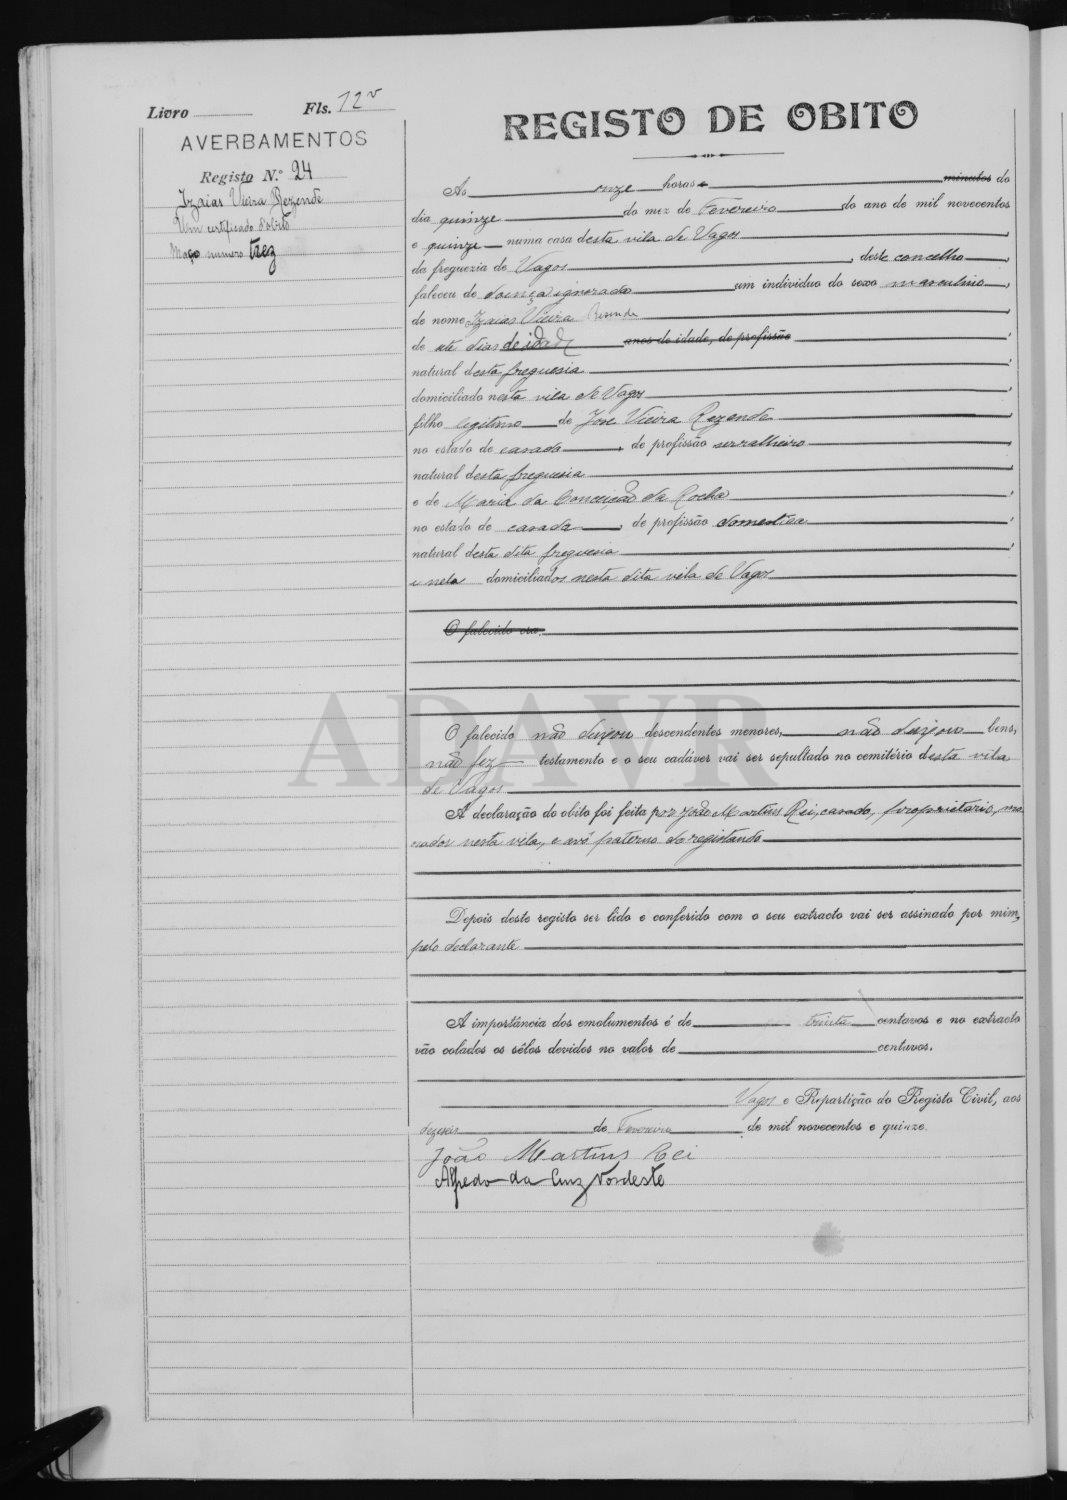 Livro Fls. 12v
AVERBAMENTOS
Registo N.º 24
Izaias Vieira Rezende
Um certificado d'obito
Maço numero trez
REGISTO DE OBITO
Às onze horas e minutos do
dia quinze do mez de Fevereiro do ano de mil novecentos
e quinze numa casa desta vila de Vagos
da freguezia de Vagos, deste concelho,
faleceu de doença ignorada um individuo do sexo masculino,
de nome Izaias Vieira Rezende
de sete dias de idade anos de idade, de profissão
natural desta freguesia
domiciliado nesta vila de Vagos
filho legitimo de José Vieira Rezende
no estado de casado, de profissão serralheiro
natural desta freguesia
e de Maria da Conceição da Rocha
no estado de casada, de profissão domestica
natural desta dita freguesia
e nela domiciliados nesta dita vila de Vagos
O falecido era
ADAVR
O falecido não deixou descendentes menores, não deixou bens,
não fez testamento e o seu cadáver vai ser sepultado no cemitério desta vila
de Vagos
A declaração do obito foi feita por João Martins Rei, casado, proprietario, mo
rador nesta vila, e avô paterno do registando
Depois deste registo ser lido e conferido com o seu extracto vai ser assinado por mim,
pelo declarante
A importância dos emolumentos é de trinta centavos e no extracto
vão colados os sêlos devidos no valor de centavos.
Vagos e Repartição do Registo Civil, aos
dezeseis de Fevereiro de mil novecentos e quinze.
João Martins Rei
Alfredo da Cruz Nordeste